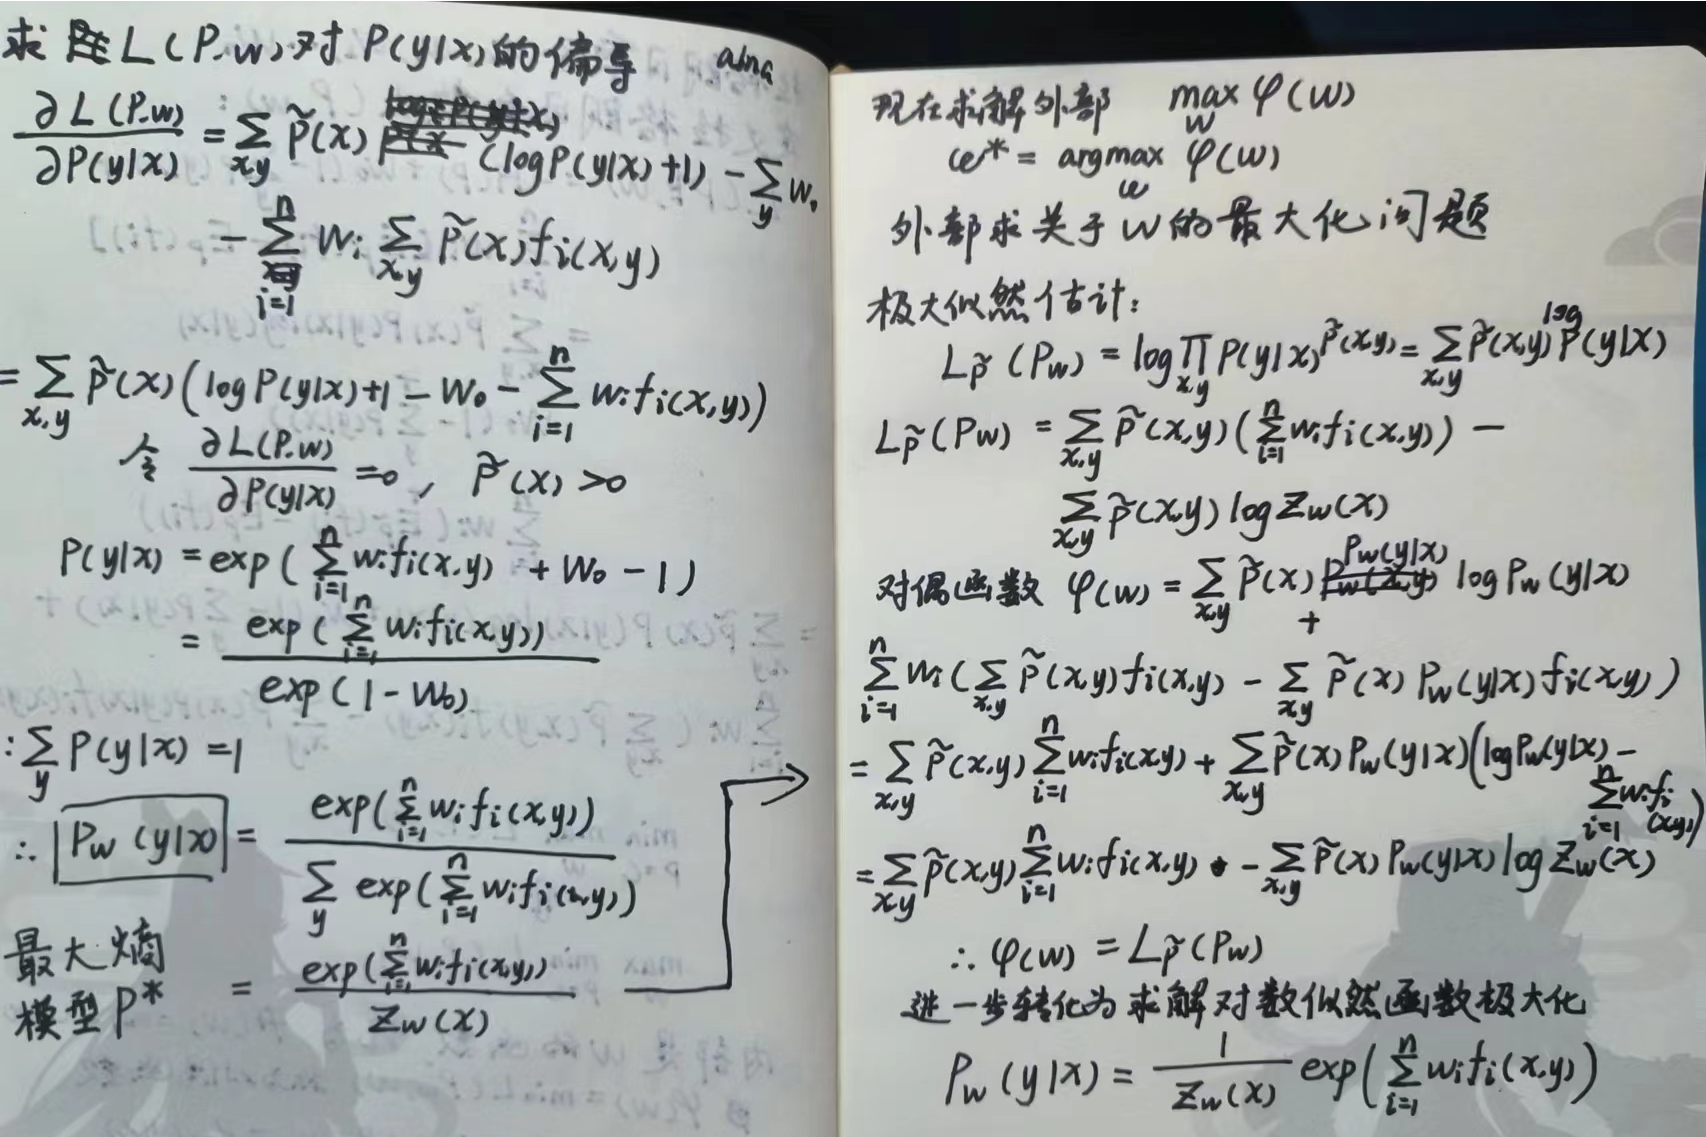 求 L(P,w)对P(y|x)的偏导
∂L(P,w)/∂P(y|x) = ∑_{x,y} P̃(x) (logP(y|x)+1) - ∑_y w₀
- ∑_{i=1}^n wᵢ ∑_{x,y} P̃(x)fᵢ(x,y)
= ∑_{x,y} P̃(x)(logP(y|x)+1 - w₀ - ∑_{i=1}^n wᵢfᵢ(x,y))
令 ∂L(P,w)/∂P(y|x) = 0, P̃(x) > 0
P(y|x) = exp(∑_{i=1}^n wᵢfᵢ(x,y) + w₀ - 1)
= exp(∑_{i=1}^n wᵢfᵢ(x,y)) / exp(1-w₀)
∵ ∑_y P(y|x) = 1
∴ P_w(y|x) = exp(∑_{i=1}^n wᵢfᵢ(x,y)) / ∑_y exp(∑_{i=1}^n wᵢfᵢ(x,y))
最大熵
模型P* = exp(∑_{i=1}^n wᵢfᵢ(x,y)) / Z_w(x)
现在求解外部 max_w φ(w)
w* = argmax_w φ(w)
外部求关于w的最大化问题
极大似然估计:
L_P̃(P_w) = log∏_{x,y} P(y|x)^{P̃(x,y)} = ∑_{x,y} P̃(x,y) log P(y|x)
L_P̃(P_w) = ∑_{x,y} P̃(x,y)(∑_{i=1}^n wᵢfᵢ(x,y)) -
∑_{x,y} P̃(x,y) log Z_w(x)
对偶函数 φ(w) = ∑_{x,y} P̃(x) P_w(y|x) log P_w(y|x)
+
∑_{i=1}^n wᵢ(∑_{x,y} P̃(x,y)fᵢ(x,y) - ∑_{x,y} P̃(x) P_w(y|x) fᵢ(x,y))
= ∑_{x,y} P̃(x,y) ∑_{i=1}^n wᵢfᵢ(x,y) + ∑_{x,y} P̃(x) P_w(y|x)(logP_w(y|x) - ∑_{i=1}^n wᵢfᵢ(x,y))
= ∑_{x,y} P̃(x,y) ∑_{i=1}^n wᵢfᵢ(x,y) - ∑_{x,y} P̃(x) P_w(y|x) log Z_w(x)
∴ φ(w) = L_P̃(P_w)
进一步转化为求解对数似然函数极大化
P_w(y|x) = 1/Z_w(x) exp(∑_{i=1}^n wᵢfᵢ(x,y))